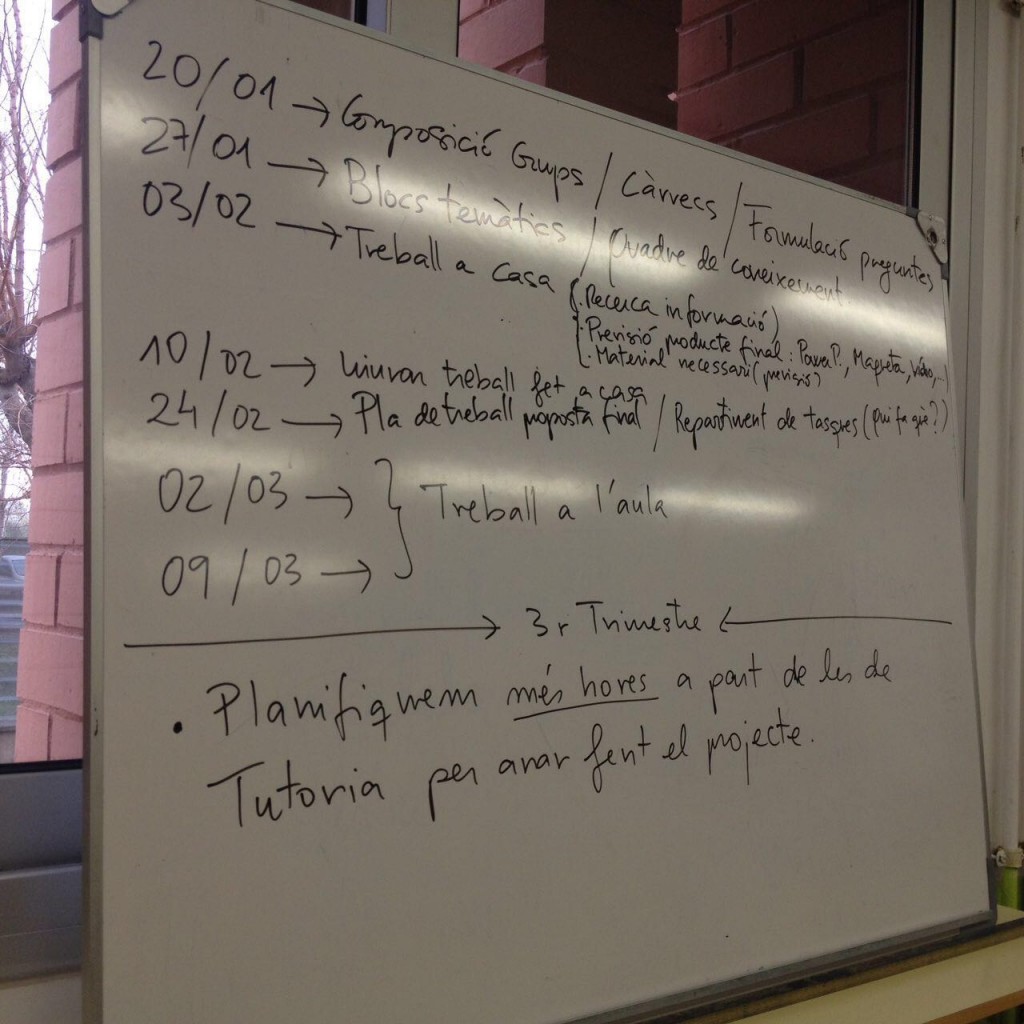 20/01 → Composició Grups / Càrrecs / Formulació preguntes
27/01 → Blocs temàtics / Quadre de coneixement
03/02 → Treball a casa (· Recerca informació)
· Previsió producte final: PowerP., Maqueta, Vídeo,...
· Material necessari (previsió)
10/02 → Lliuran treball fet a casa
24/02 → Pla de treball proposta final / Repartiment de tasques (qui fa què?)
02/03 → } Treball a l'aula
09/03 →
→ 3r Trimestre ←
· Planifiquem més hores a part de les de
Tutoria per anar fent el projecte.